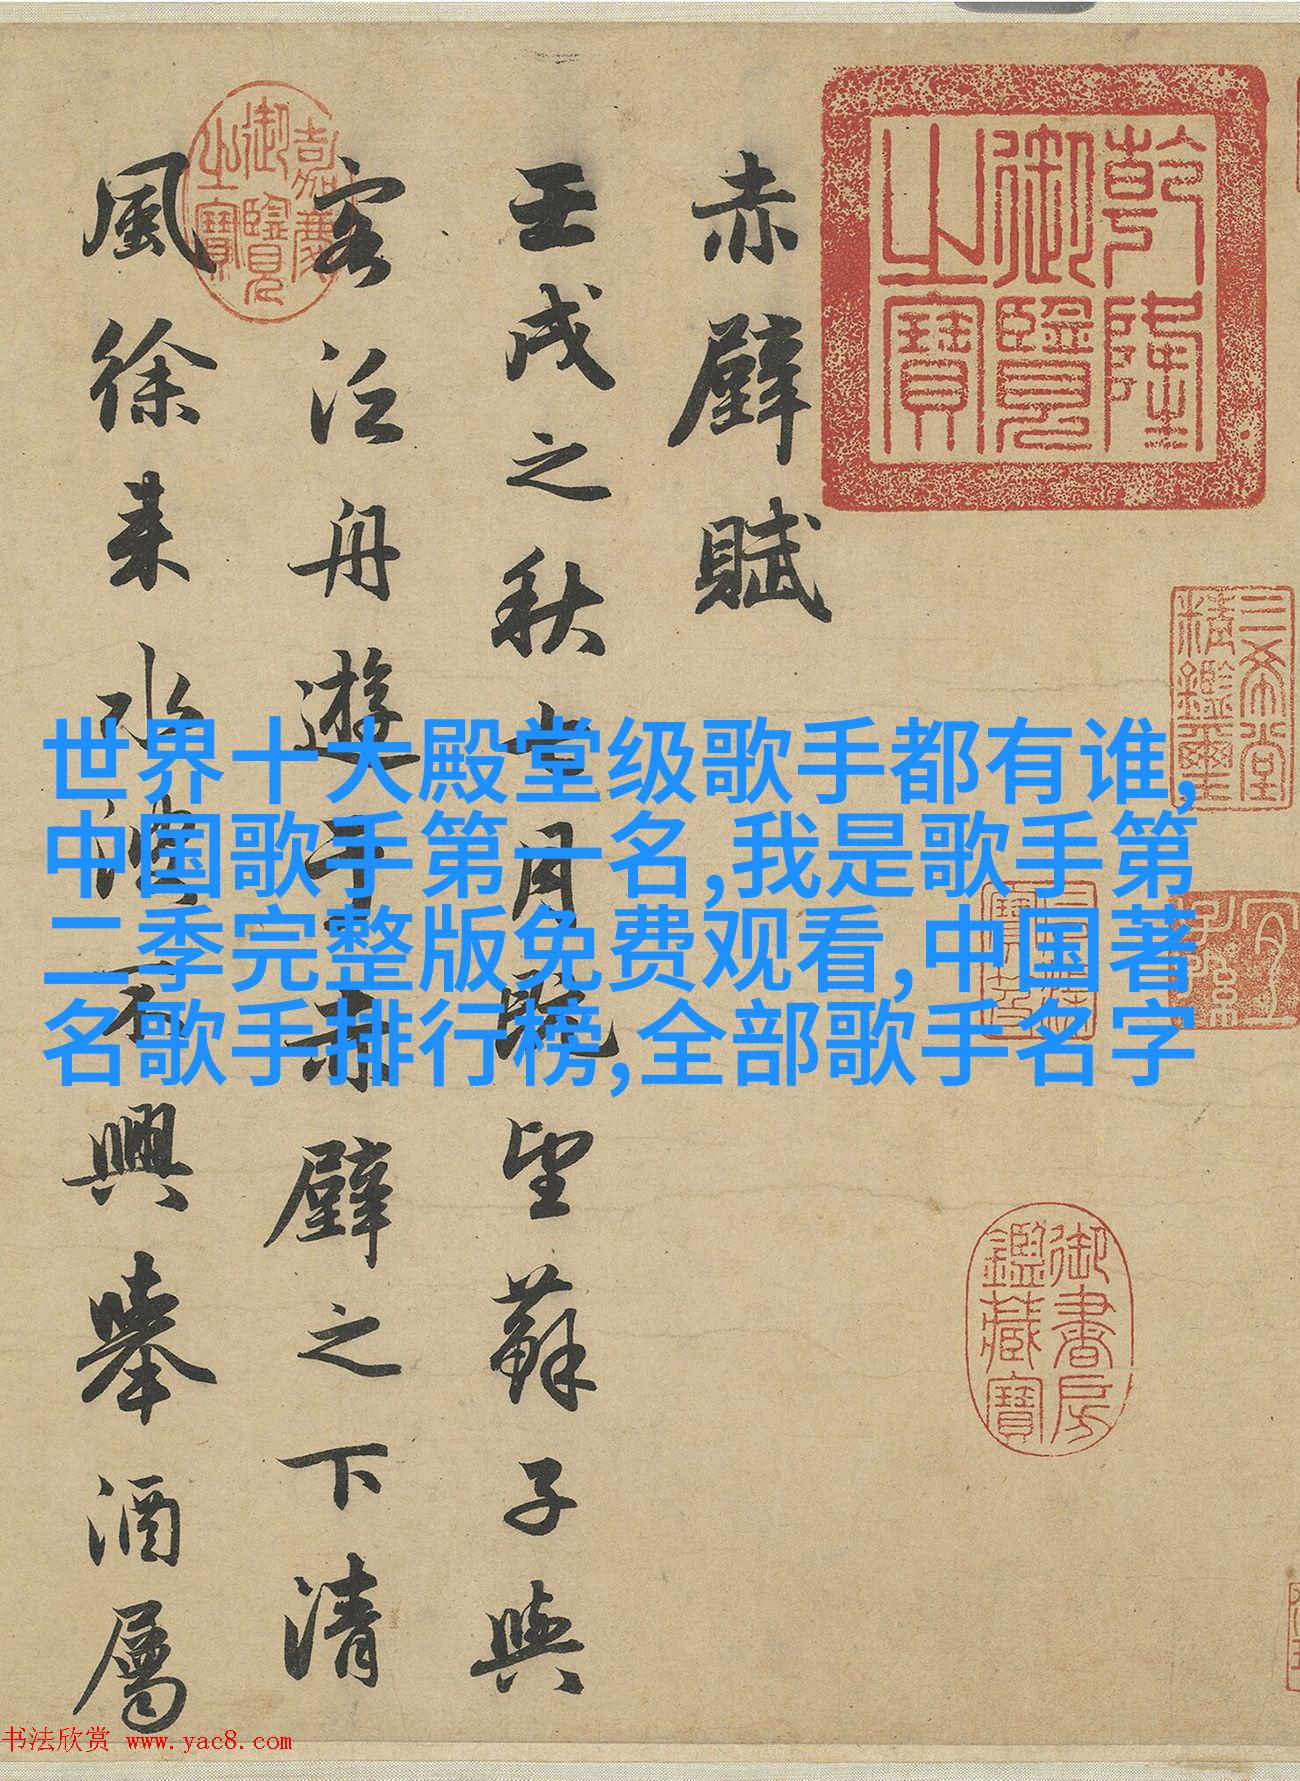 乾隆
御覽
之寶
三希堂
精鑑璽
宜
子孫
御書房
鑑藏寶
赤壁賦
壬戌之秋七月既望蘇子與
客泛舟遊于赤壁之下清
風徐來水波不興舉酒屬
嘉慶
御覽
之寶
世界十大殿堂级歌手都有谁,
中国歌手第一名,我是歌手第
二季完整版免费观看,中国著
名歌手排行榜,全部歌手名字
书法欣赏 www.yac8.com